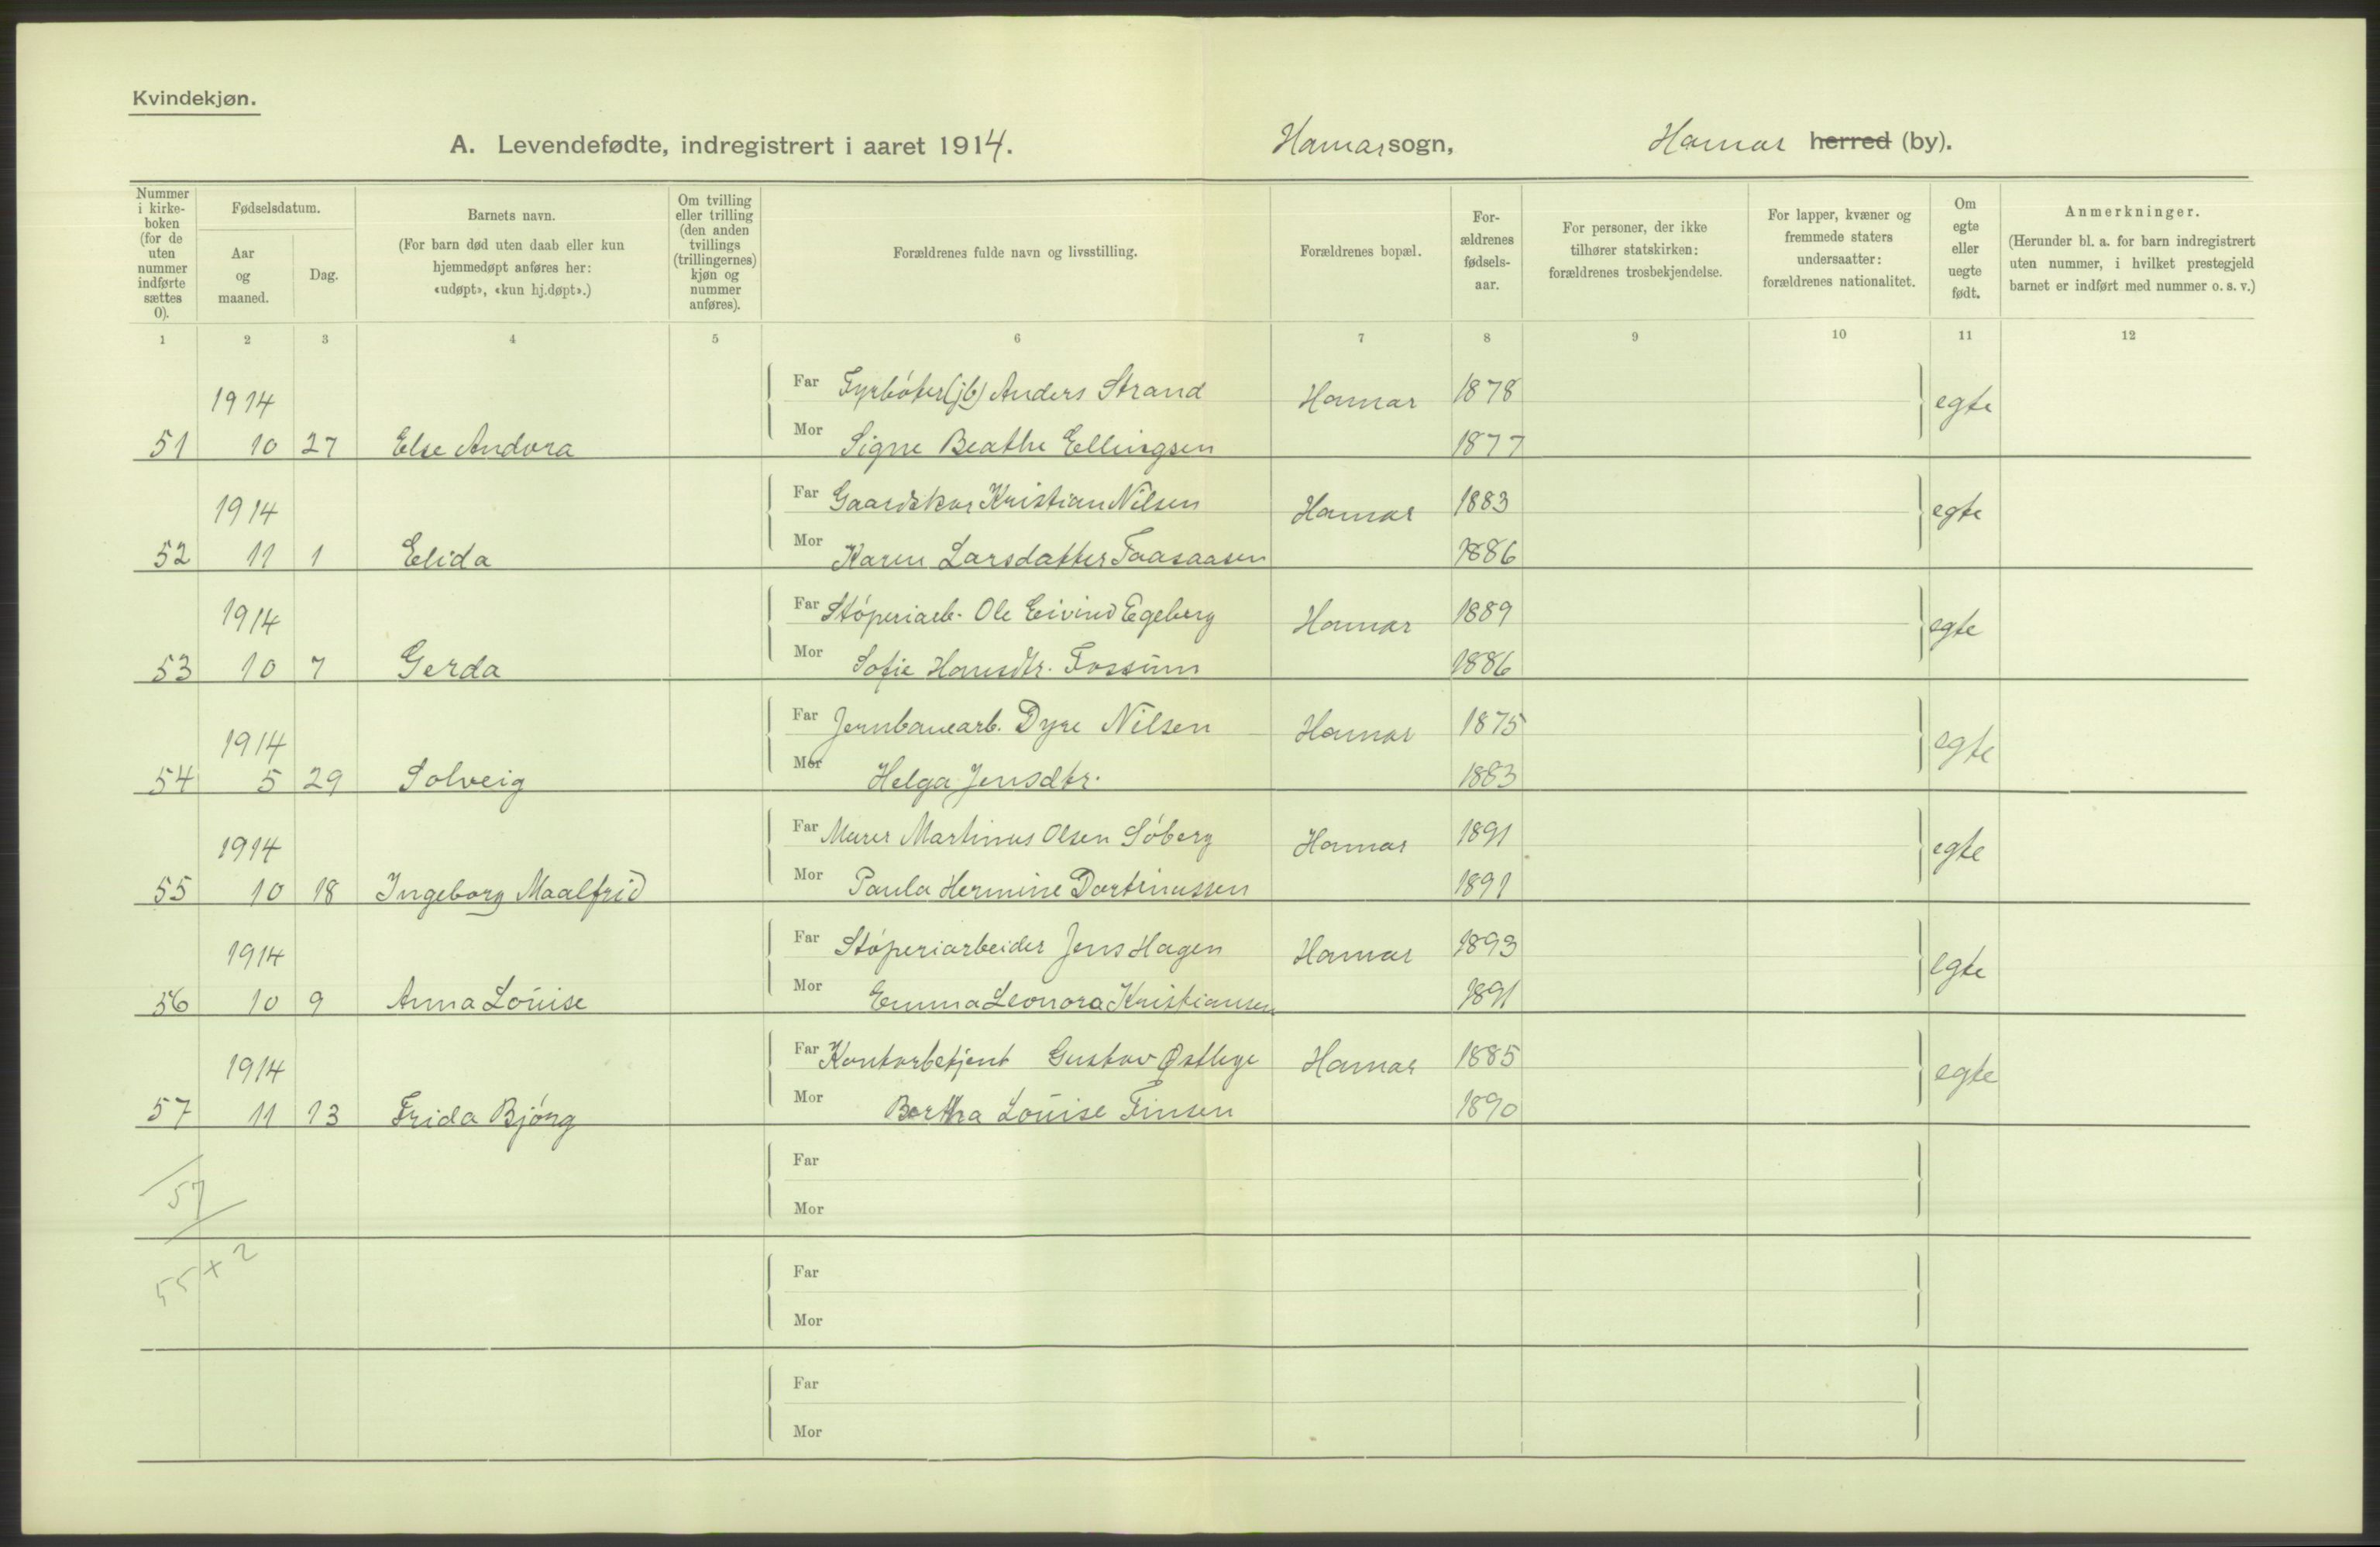 Kvindekjøn.
A. Levendefødte, indregistrert i aaret 1914. Hamar sogn, Hamar herred (by).
Nummer i kirkeboken (for de uten nummer indførte sættes 0).
Fødselsdatum.
Aar og maaned.
Dag.
Barnets navn.
(For barn død uten daab eller kun hjemmedøpt anføres her: «udøpt», «kun hj.døpt».)
Om tvilling eller trilling (den anden tvillings (trillingernes) kjøn og nummer anføres).
Forældrenes fulde navn og livsstilling.
Forældrenes bopæl.
Forældrenes fødselsaar.
For personer, der ikke tilhører statskirken: forældrenes trosbekjendelse.
For lapper, kvæner og fremmede staters undersaatter: forældrenes nationalitet.
Om egte eller uegte født.
Anmerkninger.
(Herunder bl. a. for barn indregistrert uten nummer, i hvilket prestegjeld barnet er indført med nummer o. s. v.)
1 2 3 4 5 6 7 8 9 10 11 12
1914 Far Fyrbóter (jb) Anders Strand Hamar 1878 egte
51 10 27 Else Andora Mor Signe Beathe Ellingsen 1877
1914 Far Gaardskar Kristian Nilsen Hamar 1883 egte
52 11 1 Elida Mor Karen Larsdatter Taasaasen 1886
1914 Far Stóperiarb. Ole Eivind Egeberg Hamar 1889 egte
53 10 7 Gerda Mor Sofie Hansdtr. Fossum 1886
1914 Far Jernbanearb. Dyre Nilsen Hamar 1875 egte
54 5 29 Solveig Mor Helga Jensdtr. 1883
1914 Far Murer Martinus Olsen Sóberg Hamar 1891 egte
55 10 18 Ingeborg Maalfrid Mor Paula Hermine 1891
1914 Far Stóperiarbeider Jens Hagen Hamar 1893 egte
56 10 9 Anna Louise Mor Emma Leonora Kristiansen 1891
1914 Far Kontorbetjent Gustav Østlye Hamar 1885 egte
57 11 13 Frida Bjórg Mor Bertha Louise Finsen 1890
Far
57
Mor
55 + 2
Far
Mor
Far
Mor